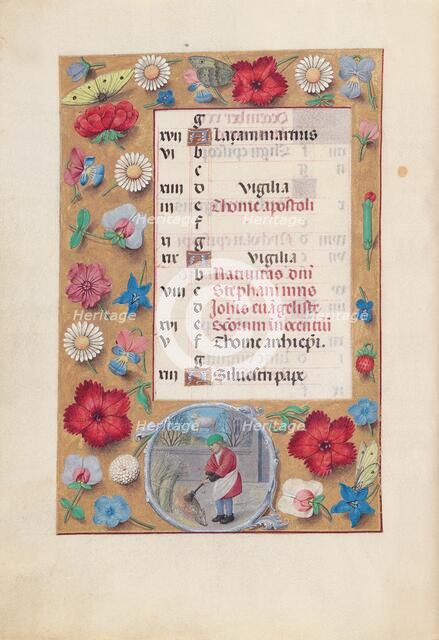 g
xvii A Laçari martiris
vi b
c
xiiii d Vigilia
iii e Thome apostoli
f
xi g
xix A Vigilia
b Natiuitas dñi
viii c Stephani mris
d Johis euãgeliste
xvi e Scorum inocentiũ
v f Thome archiepi.
g
xiii A Siluestri pape
Heritage
Heritage
Heritage
Heritage
Heritage
Heritage